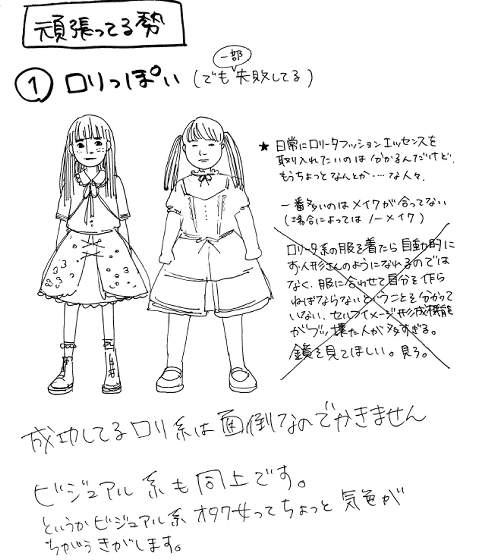 頑張ってる勢
① ロリっぽい (でも一部失敗してる)
★ 日常にロリータファッションエッセンスを
取り入れたいのは分かるんだけど、
もうちょっとなんとか…な人々。
一番多いのはメイクが合ってない
(場合によってはノーメイク)
ロリータ系の服を着たら自動的に
お人形さんのようになれるのでは
なく、服に合わせて自分を作ら
ねばならないということを分かって
いない、セルフイメージ形成機能
がブッ壊れた人が多すぎる。
鏡を見てほしい。見ろ。
成功してるロリ系は面倒なのでかきません
ビジュアル系も同上です。
というかビジュアル系オタク女ってちょっと気色が
ちがうきがします。